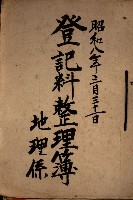 昭和八年三月三十一日
登記料整理簿
地理係